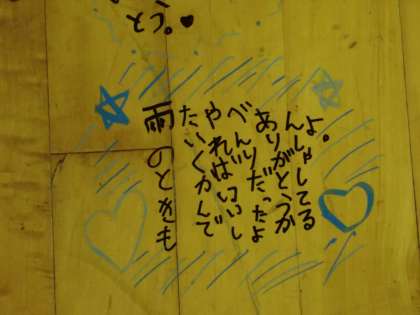 とう。♥
雨のときも
たいくかんで
やればいいし
べんりだったよ
ありがとうか
んしゃしてる
よ。